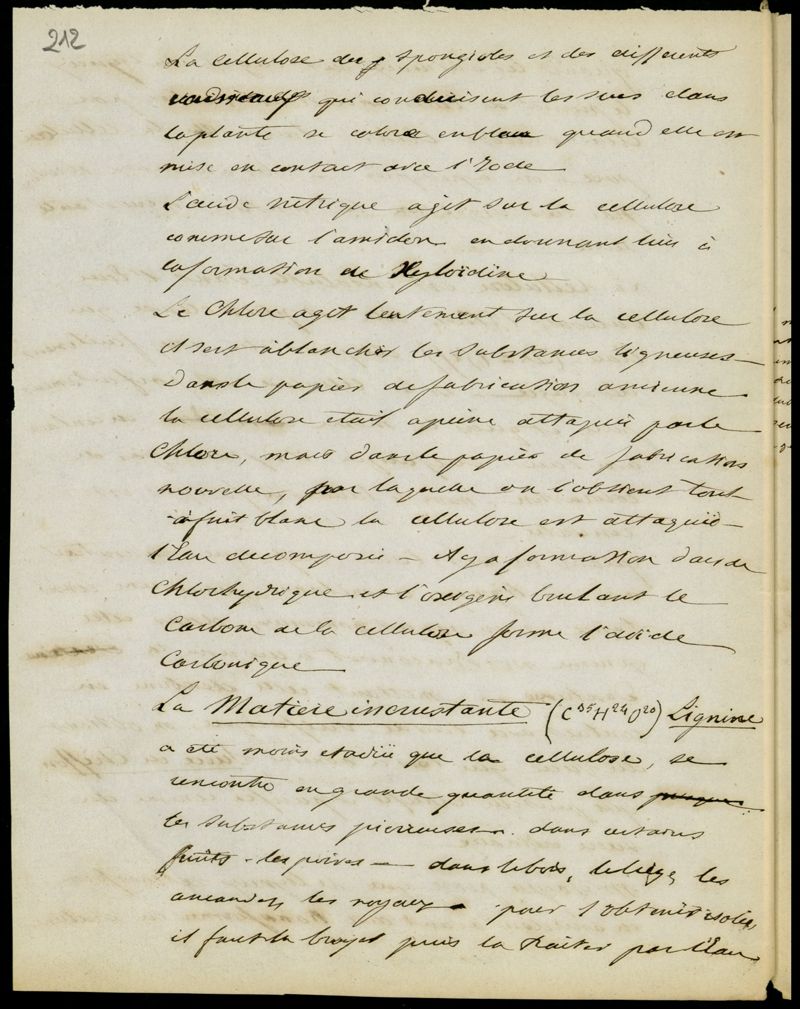 212
La cellulose des spongioles et des differents
vaisseaux qui conduisent les sucs dans
la plante se colore en bleu quand elle est
mise en contact avec l'Iode
L'acide nitrique agit sur la cellulose
comme sur l'amidon en donnant lieu à
la formation de Xyloïdine
Le Chlore agit lentement sur la cellulose
il sert à blanchir les substances ligneuses —
Dans le papier de fabrication ancienne
la cellulose etait a peine attaquée par le
Chlore, mais dans le papier de fabrication
nouvelle, par laquelle on l'obtient tout
à fait blanc la cellulose est attaquée —
l'Eau decomposée — il y a formation d'acide
Chlorhydrique et l'oxigène brulant le
Carbone de la cellulose forme l'acide
Carbonique
La Matière incrustante (C³⁵H²⁴O²⁰) Lignine
a été moins etudiée que la cellulose, se
rencontre en grande quantité dans
les substances pierreuses dans certains
fruits - les poires — dans le bois, le liège, les
amandes les noyaux pour l'obtenir isolée
il faut la broyer puis la traiter par l'Eau